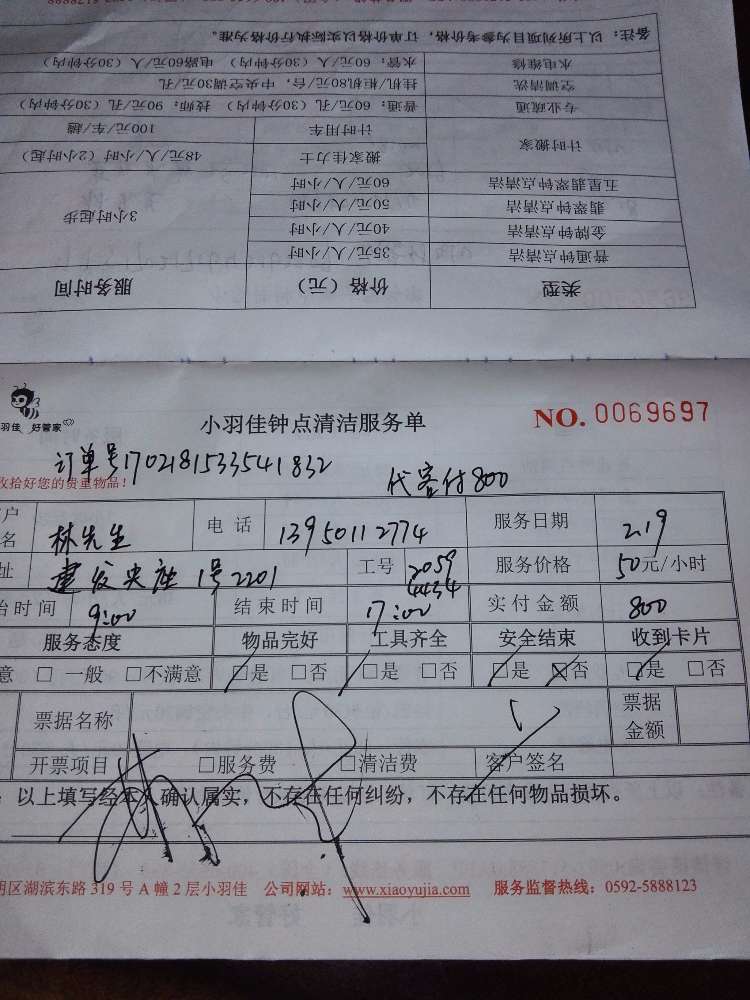 备注：以上所列项目为参考价格，订单价格以实际执行价格为准。
水电维修 水管：60元/人（30分钟内） 电路60元/人（30分钟内）
空调清洗 挂机/柜机80元/台，中央空调30元/孔
专业疏通 普通：60元/孔（30分钟内） 技师：90元/孔（30分钟内）
计时搬家 计时用车 100元/车/趟
搬家佳力士 48元/人/小时（2小时起）
五星翡翠钟点清洁 60元/人/小时 3小时起步
翡翠钟点清洁 50元/人/小时
金牌钟点清洁 40元/人/小时
普通钟点清洁 35元/人/小时
类型 价格（元） 服务时间
羽佳 好管家
小羽佳钟点清洁服务单 NO. 0069697
订单号1702181533541832
收拾好您的贵重物品！ 代客付800
户名 林先生 电话 13950112774 服务日期 2.19
址 建发央座1号2201 工号 2059 4434 服务价格 50元/小时
始时间 9:00 结束时间 17:00 实付金额 800
服务态度 物品完好 工具齐全 安全结束 收到卡片
意 □一般 □不满意 □是 □否 □是 □否 □是 □否 □是 □否
票据名称 票据金额
开票项目 □服务费 □清洁费 客户签名
：以上填写经本人确认属实，不存在任何纠纷，不存在任何物品损坏。
明区湖滨东路319号A幢2层小羽佳 公司网站：www.xiaoyujia.com 服务监督热线：0592-5888123